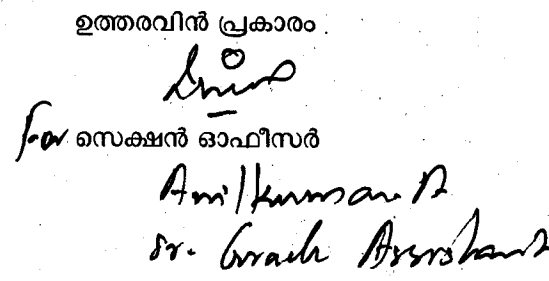 ഉത്തരവിൻ പ്രകാരം
For സെക്ഷൻ ഓഫീസർ
Anilkumar A
Sr. Grade Assistant